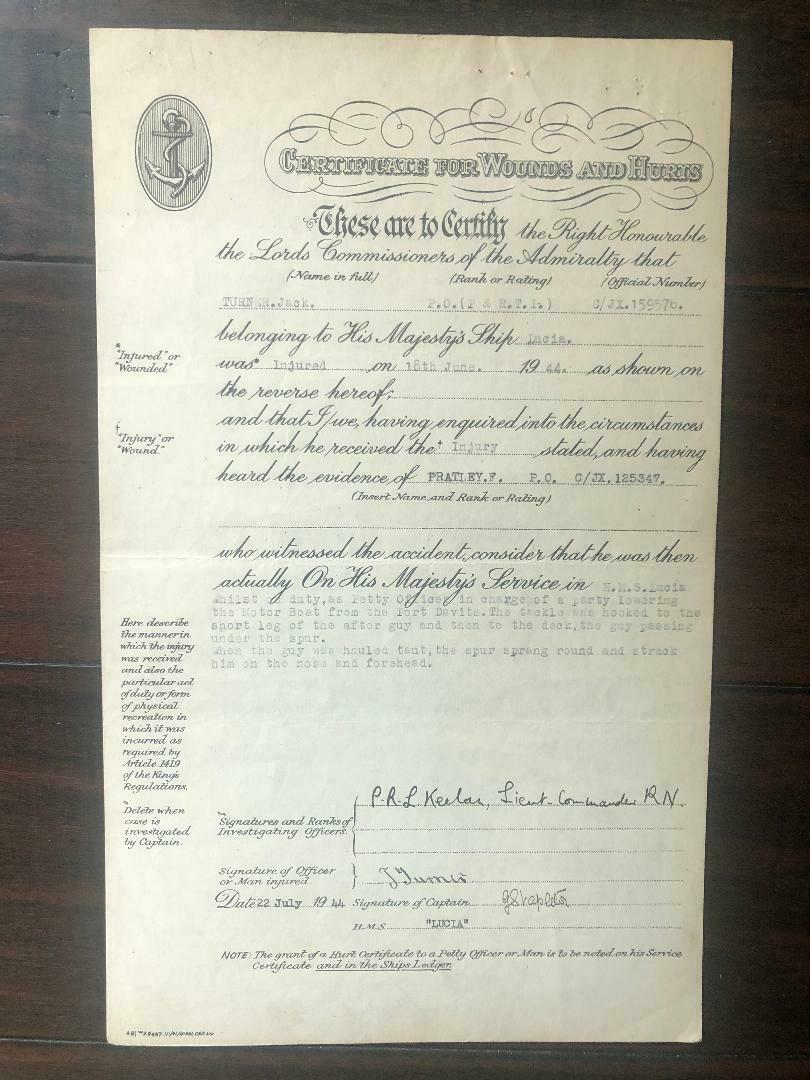 CERTIFICATE FOR WOUNDS AND HURTS
These are to Certify the Right Honourable
the Lords Commissioners of the Admiralty that
(Name in full) (Rank or Rating) (Official Number)
TURNER.Jack. P.O.(P & R.T.I.) C/JX.159576.
belonging to His Majesty's Ship Lucia.
* "Injured" or "Wounded"
was* Injured on 18th June. 1944. as shown on
the reverse hereof;
and that I/we, having enquired into the circumstances
† "Injury" or "Wound."
in which he received the† Injury stated, and having
heard the evidence of PRATLEY.F. P.O. C/JX.125347.
(Insert Name and Rank or Rating)
who witnessed the accident, consider that he was then
actually On His Majesty's Service in H.M.S.Lucia
whilst on duty, as Petty Officer in charge of a party lowering
the Motor Boat from the Port Davits. The tackle was hooked to the
short leg of the after guy and then to the deck, the guy passing
under the spur.
When the guy was hauled taut, the spur sprang round and struck
him on the nose and forehead.
Here describe
the manner in
which the injury
was received
and also the
particular act
of duty or form
of physical
recreation in
which it was
incurred as
required by
Article 1419
of the King's
Regulations.
Delete when
case is
investigated
by Captain.
Signatures and Ranks of
Investigating Officers.
P.R.L. Keelan, Lieut-Commander R.N.
Signature of Officer
or Man injured.
J Turner
Date 22 July 1944 Signature of Captain G Stapleton
H.M.S. "LUCIA"
NOTE: The grant of a Hurt Certificate to a Petty Officer or Man is to be noted on his Service
Certificate and in the Ships Ledger.